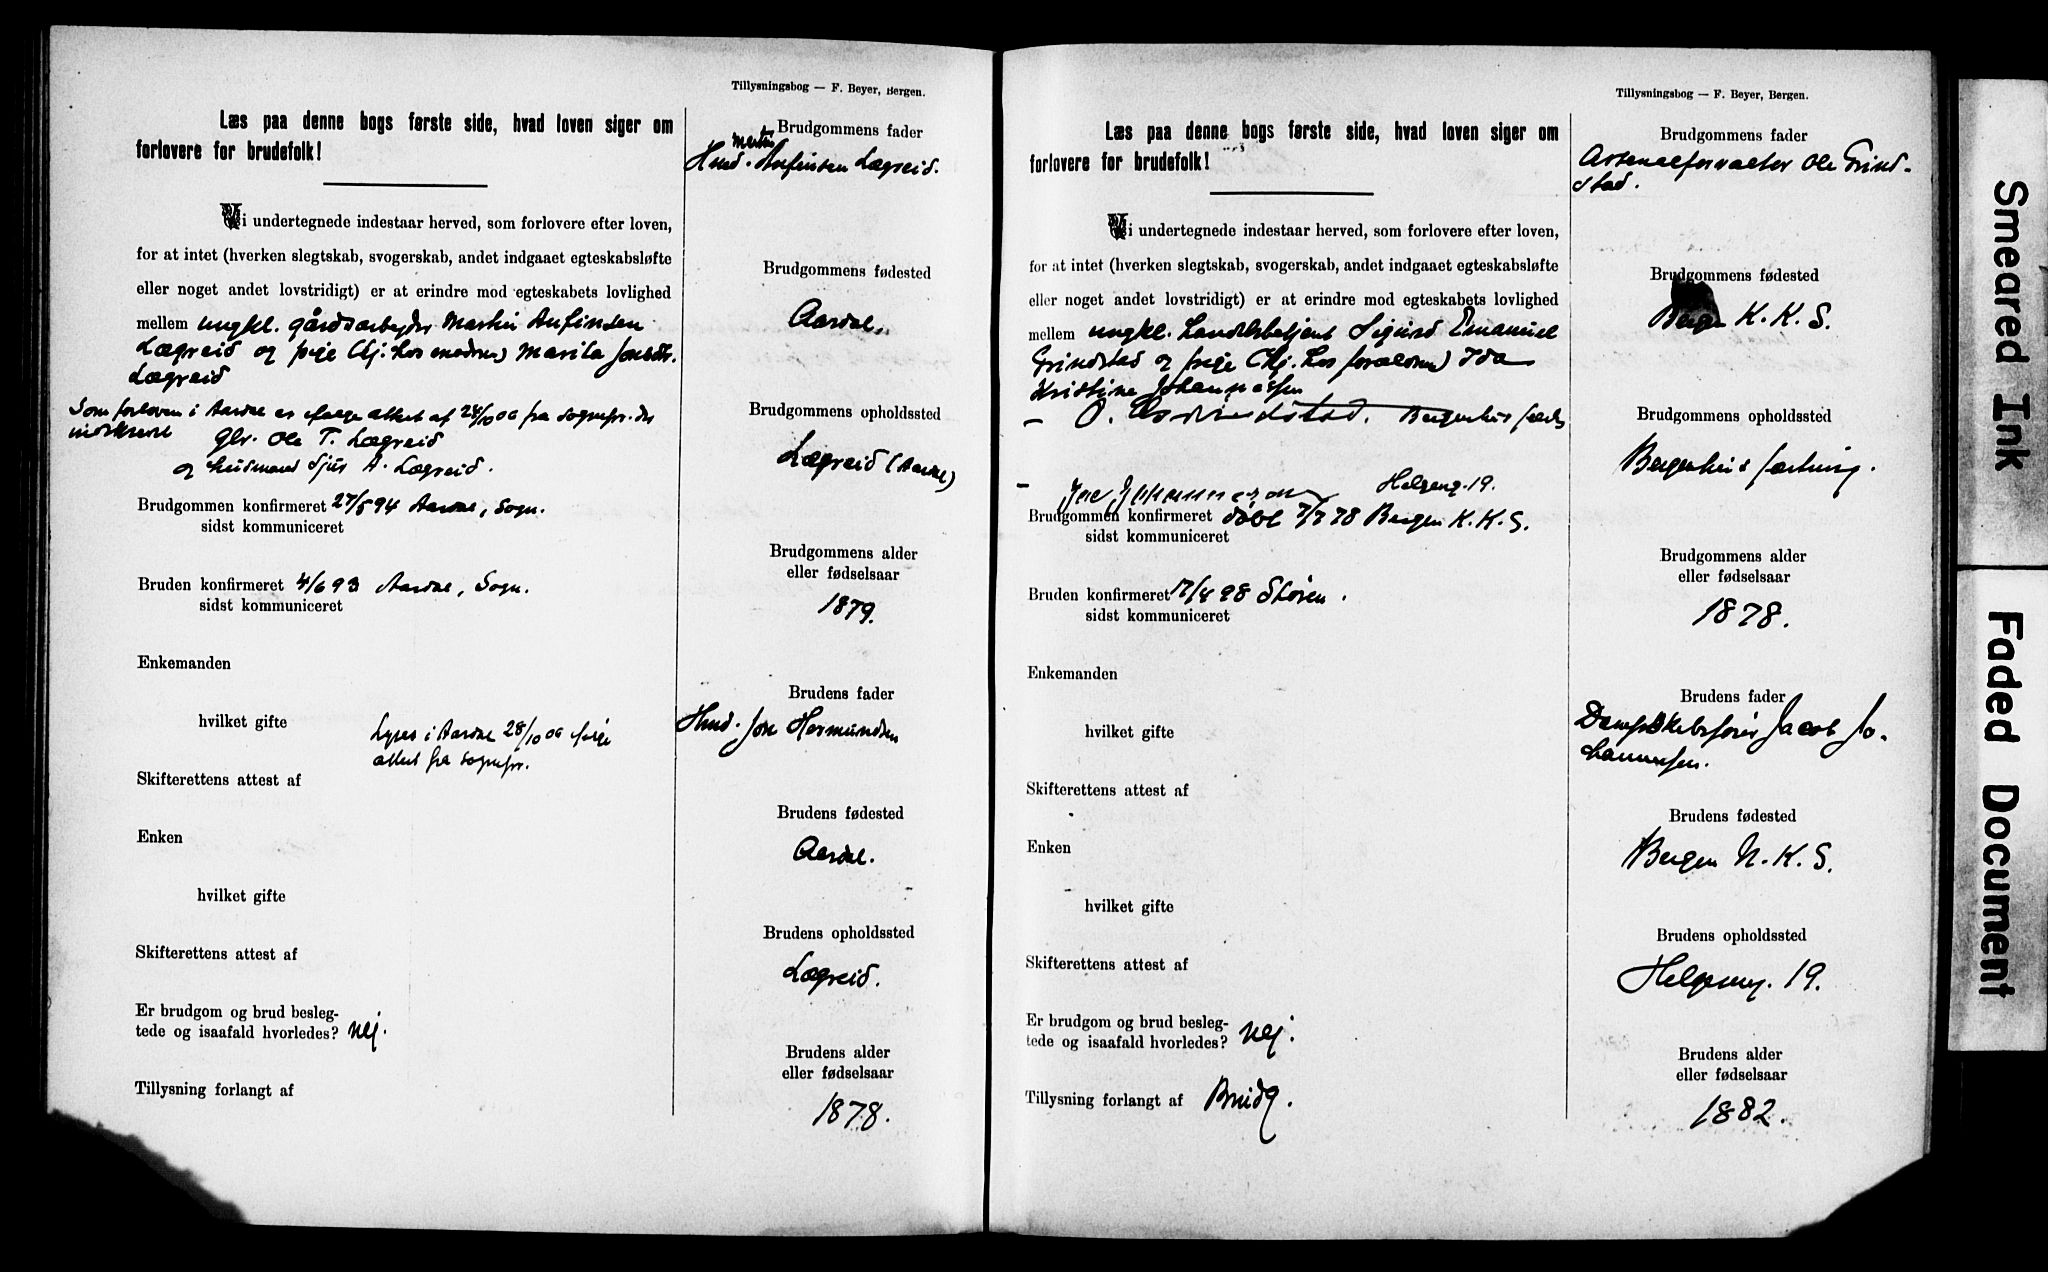 Tillysningsbog — F. Beyer, Bergen.
Læs paa denne bogs første side, hvad loven siger om
forlovere for brudefolk!
Vi undertegnede indestaar herved, som forlovere efter loven,
for at intet (hverken slegtskab, svogerskab, andet indgaaet egteskabsløfte
eller noget andet lovstridigt) er at erindre mod egteskabets lovlighed
mellem ungkl. gårdsarbejder Martin Anfinsen
Lægreid og pige (hj. hos moderen) Marita Jonsdtr.
Lægreid
Som forlovere i Aardal er ifølge attest af 28/10 00 fra sognepr. der
indskrevet gbr. Ole T. Lægreid
og husmand Sjur A. Lægreid.
Brudgommen konfirmeret 27/5 94 Aardal, Sogn.
sidst kommuniceret
Bruden konfirmeret 4/6 93 Aardal, Sogn.
sidst kommuniceret
Enkemanden
hvilket gifte
Lyses i Aardal 28/10 00 ifølge
attest fra sognepr.
Skifterettens attest af
Enken
hvilket gifte
Skifterettens attest af
Er brudgom og brud besleg-
tede og isaafald hvorledes? nej.
Tillysning forlangt af
Brudgommens fader
Martin
Hmd. Anfinsen Lægreid.
Brudgommens fødested
Aardal.
Brudgommens opholdssted
Lægreid (Aardal)
Brudgommens alder
eller fødselsaar
1879.
Brudens fader
Hmd. Jon Hermundsen
Brudens fødested
Aardal.
Brudens opholdssted
Lægreid.
Brudens alder
eller fødselsaar
1878.
Tillysningsbog — F. Beyer, Bergen.
Læs paa denne bogs første side, hvad loven siger om
forlovere for brudefolk!
Vi undertegnede indestaar herved, som forlovere efter loven,
for at intet (hverken slegtskab, svogerskab, andet indgaaet egteskabsløfte
eller noget andet lovstridigt) er at erindre mod egteskabets lovlighed
mellem ungkl. handelsbetjent Sigurd Emanuel
Grindstad og pige (hj. hos forældrene) Ida
Kristine Johannessen
O. Grindstad. Bergenhus fæstn.
Johannessen Helgeseng. 19.
Brudgommen konfirmeret døbt 7/7 78 Bergen K. K. S.
sidst kommuniceret
Bruden konfirmeret 17/4 98 Støren.
sidst kommuniceret
Enkemanden
hvilket gifte
Skifterettens attest af
Enken
hvilket gifte
Skifterettens attest af
Er brudgom og brud besleg-
tede og isaafald hvorledes? nej.
Tillysning forlangt af Brudg.
Brudgommens fader
Arsenalforvalter Ole Grind-
stad.
Brudgommens fødested
Bergen K. K. S.
Brudgommens opholdssted
Bergenhus fæstning.
Brudgommens alder
eller fødselsaar
1878.
Brudens fader
Dampskibsfører Jacob Jo-
hannessen.
Brudens fødested
Bergen N. K. S.
Brudens opholdssted
Helgeseng. 19.
Brudens alder
eller fødselsaar
1882.
Smeared Ink
Faded Document